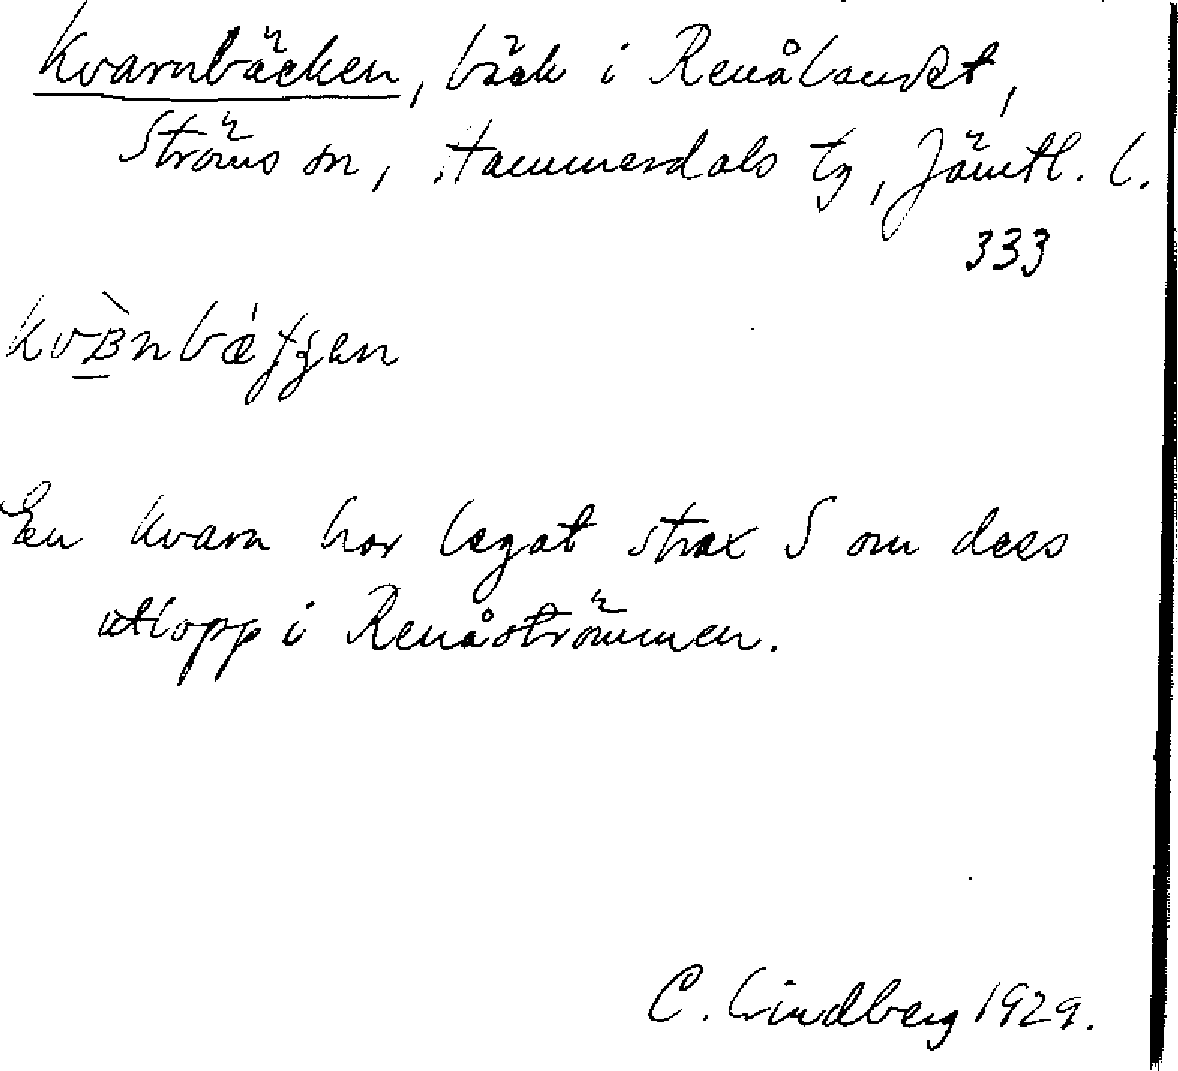 Kvarnbäcken, bäck i Renålandet,
Ströms sn, Hammerdals tg, Jämtl. l.
333
En kvarn har legat strax S om dess
utlopp i Renåströmmen.
C. Lindberg 1929.